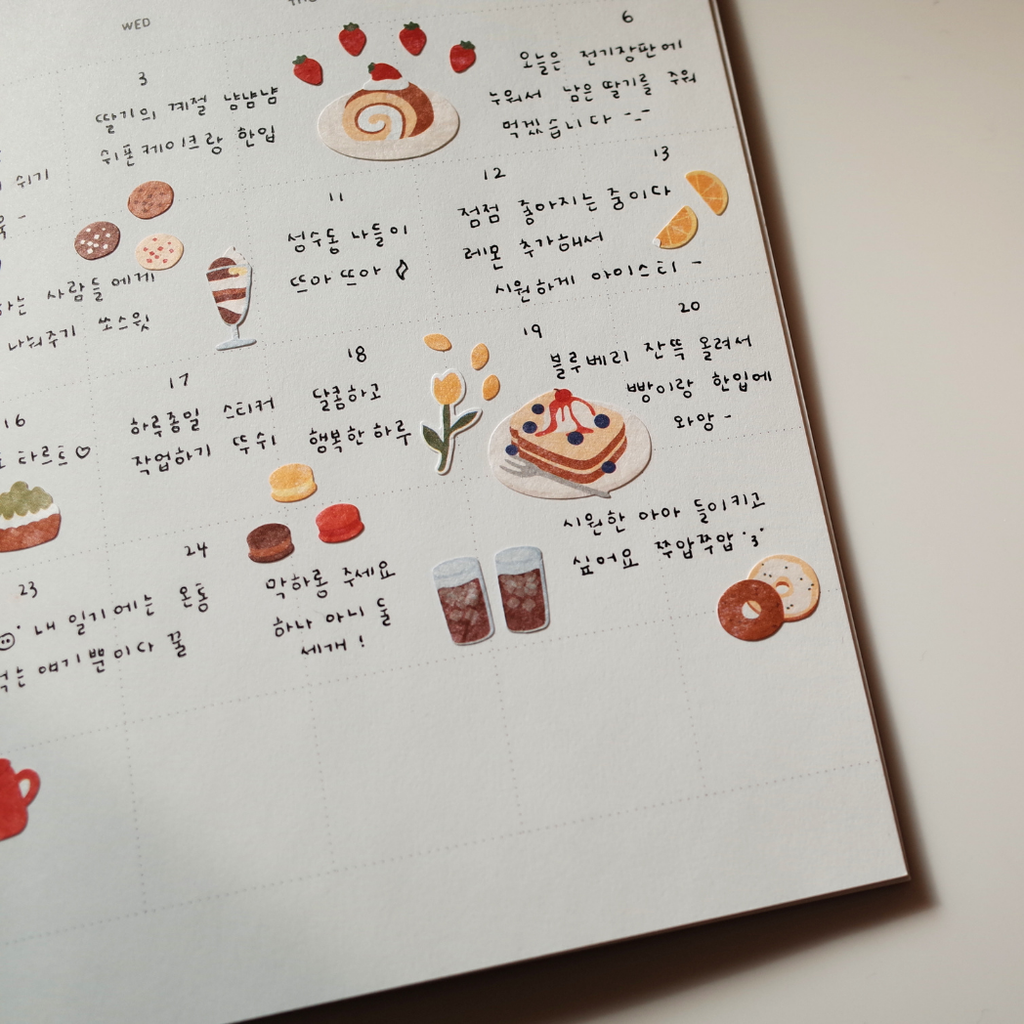 WED
3
딸기의 계절 냠냠냠
쉬폰케이크랑 한입
6
오늘은 전기장판에
누워서 남은 딸기를 주워
먹겠습니다 -.-
쉬기
사람들에게
나눠주기 쏘스윗
11
성수동 나들이
뜨아 뜨아
12
13
점점 좋아지는 중이다
레몬 추가해서
시원하게 아이스티 ~
16
타르트♡
17
하루종일 스티커
작업하기 뚜쉬
18
달콤하고
행복한 하루
19
20
블루베리 잔뜩 올려서
빵이랑 한입에
와앙 ~
23
내 일기에는 온통
먹는 얘기뿐이다 꿀
24
막하롱 주세요
하나 아니 둘
세개 !
시원한 아아 들이키고
싶어요 쭈압쭈압 '3'